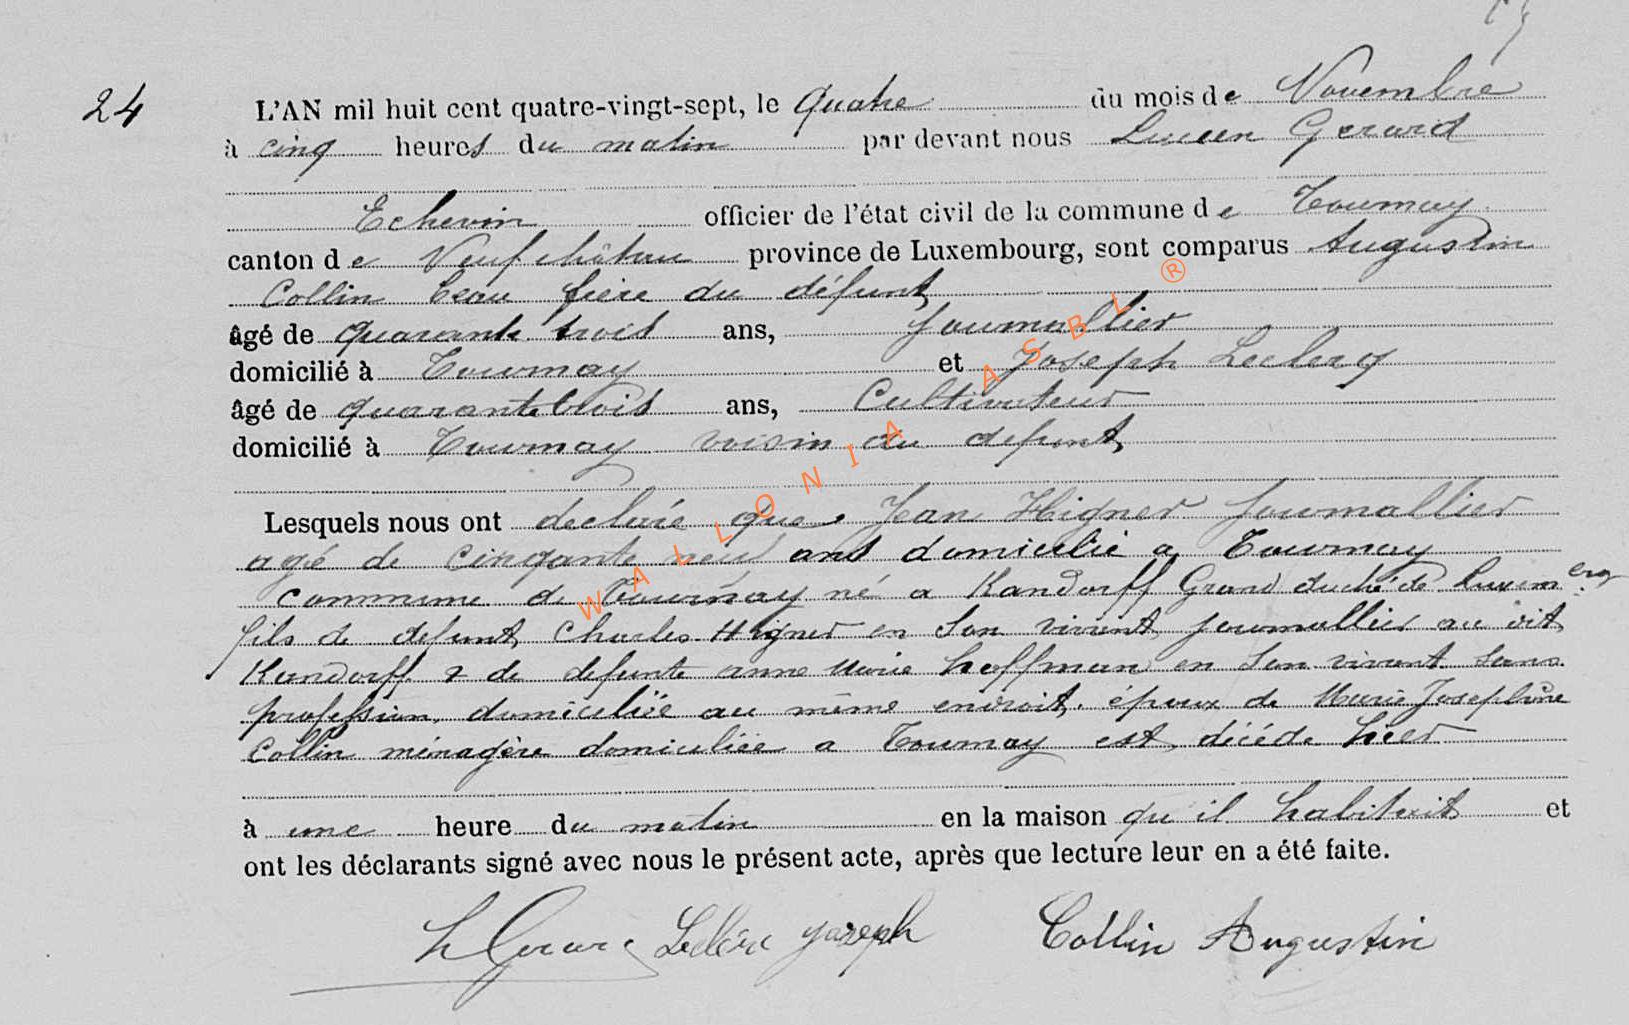 24
L'AN mil huit cent quatre-vingt-sept, le Quatre du mois de Novembre
à cinq heures du matin par devant nous Lucien Gerard
Echevin officier de l'état civil de la commune de Tournay
canton de Neufchâteau province de Luxembourg, sont comparus Augustin
Collin beau frère du défunt
âgé de quarante trois ans, journallier
domicilié à Tournay et Joseph Leclercq
âgé de quarante trois ans, Cultivateur
domicilié à Tournay voisin au defunt
Lesquels nous ont declaré que Jean Higner journallier
agé de cinqante neuf ans domicilié a Tournay
commune de Tournay né a Kandorff Grand duché de Luxem
fils de defunt Charles Higner en son vivant journallier au dit
Kandorff & de defunte anne Marie hoffman en son vivant sans
profession, domiciliée au même endroit, époux de Marie Josephine
Collin ménagère domiciliée a Tournay est décédé hier
à une heure du matin en la maison qu'il habitait et
ont les déclarants signé avec nous le présent acte, après que lecture leur en a été faite.
L Gerard Leclerc Joseph Collin Augustin
WALLONIA ASBL ®